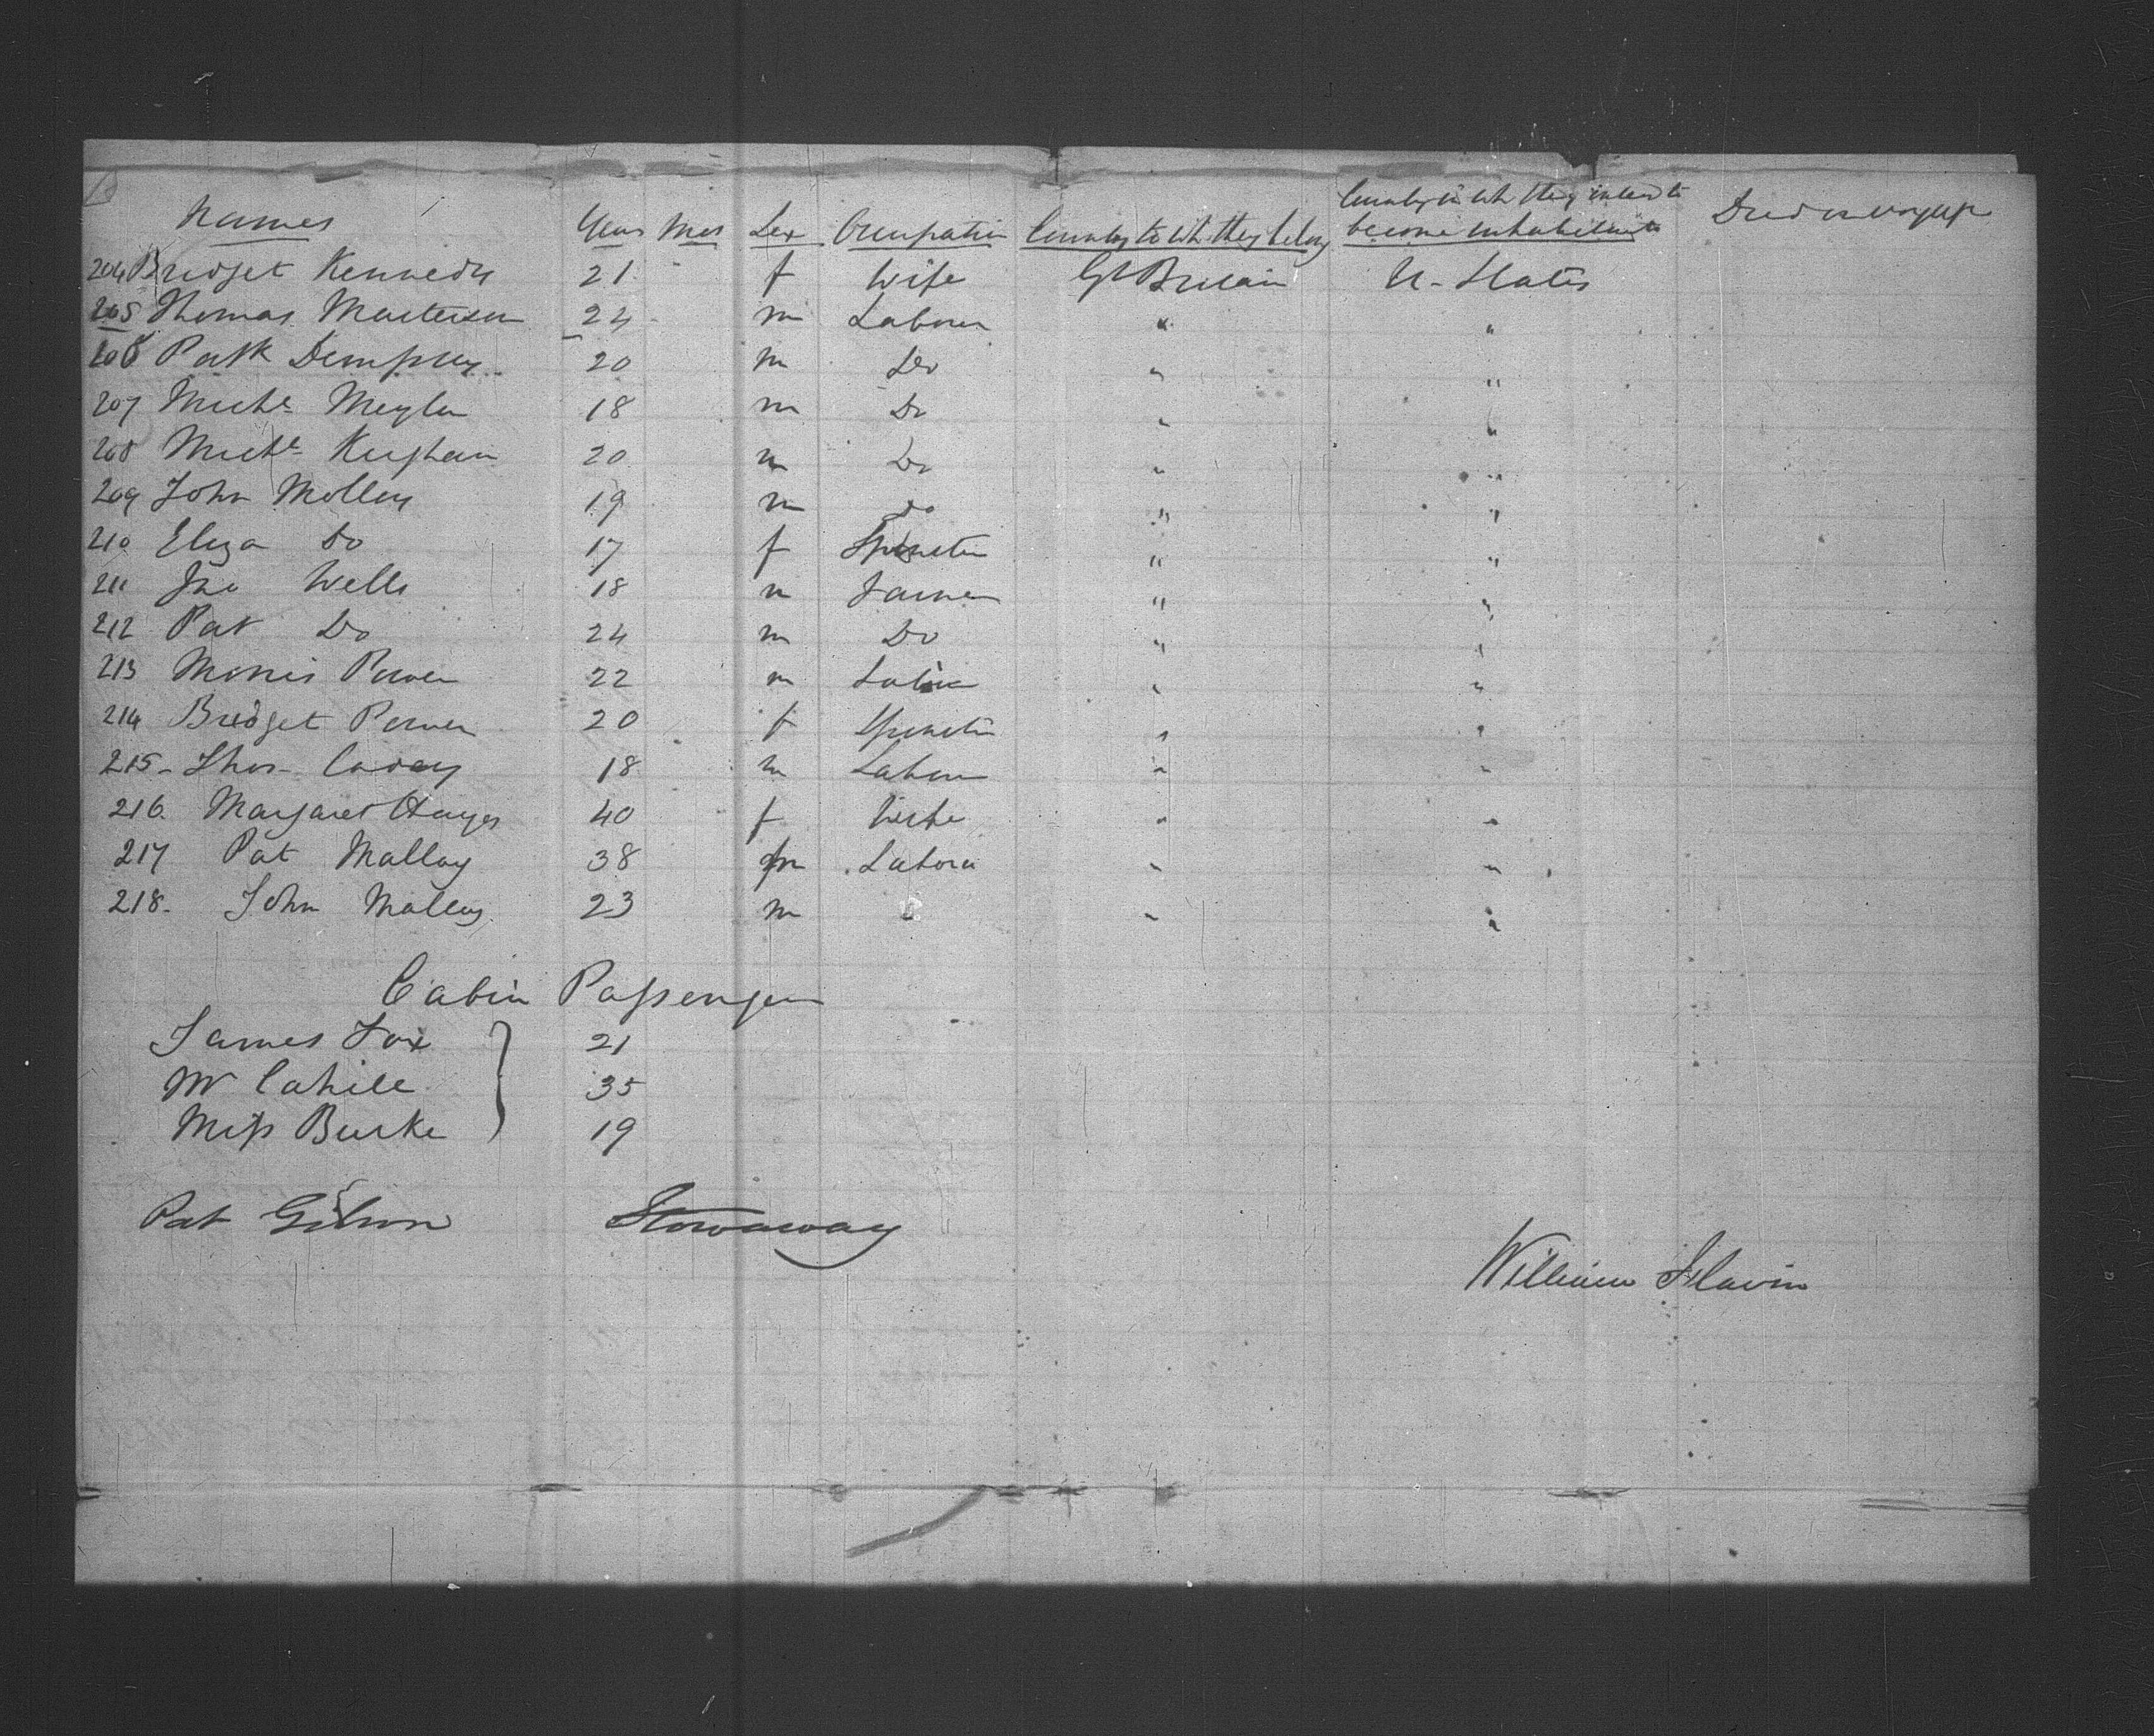 Names Years Mos Sex Occupation Country to wh. they belong Country in wh they intend to become inhabitants Died on voyage
204 Bridget Kennedy 21 f Wife Gt Britain U. States
205 Thomas Masterson 24 m Laborer " "
206 Patk Dempsey 20 m Do " "
207 Michl 18 m Do " "
208 Michl Keeghan 20 m Do " "
209 John Molloy 19 m Do " "
210 Eliza Do 17 f Spinster " "
211 Jno Wells 18 m Farmer " "
212 Pat Do 24 m Do " "
213 Morris Power 22 m Labor " "
214 Bridget Power 20 f Spinster " "
215 - Thos - 18 m Labour " "
216. Margaret Hayes 40 f Wife " "
217 Pat Malloy 38 m Labora " "
218 - John Malloy 23 m " "
Cabin Passengers
James Fox 21
Mr Cahill 35
Miss Burke 19
Pat Gibson Stowaway
William Slavin